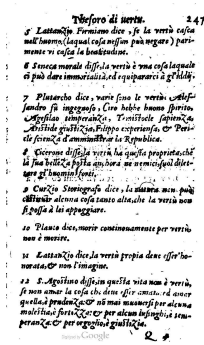 Thesoro di uertu. 247
5 Lattanzio Firmiano dice, se la vertù casca
nell'huomo (laqual cosa nessun può negare) pari-
mente vi casca la beatitudine.
6 Seneca morale disse, la vertù è vna cosa laquale
ci può dare immortalità, ed equipararci à gl'Iddij.
7 Plutarcho dice, varie sono le vertù: Ales-
sandro fu ingegnoso, Ciro hebbe buono spirito,
Agesilao temperanza, Temistocle sapienza,
Aristide giustizia, Filippo experiensa, & Peri-
cle scienza d'amministrar la Republica.
8 Cicerone disse, la vertù ha questa proprietà, che
la sua bellezza posta ancora ne nemici, suol dilet-
tare gl'huomini forti.
9 Curzio Storiografo dice, la natura non può
alcuna cosa tanto alta, che la vertù non
si possa à lei appoggiare.
10 Plauto dice, morir continouamente per vertù,
non è morire.
11 Lattanzio dice, la vertù propia deue esser ho-
norata, & non l'imagine.
12 S. Agostino disse, in questa vita non è vertù,
se non amar la cosa che deue esser amata. ed amar
quella, è prudenza: & nō mai muouersi per alcuna
molestia, è fortezza: & per alcun lusinghe, è tem-
peranza: & per orgoglio, è giustizia.
Q 4
Digitized by Google